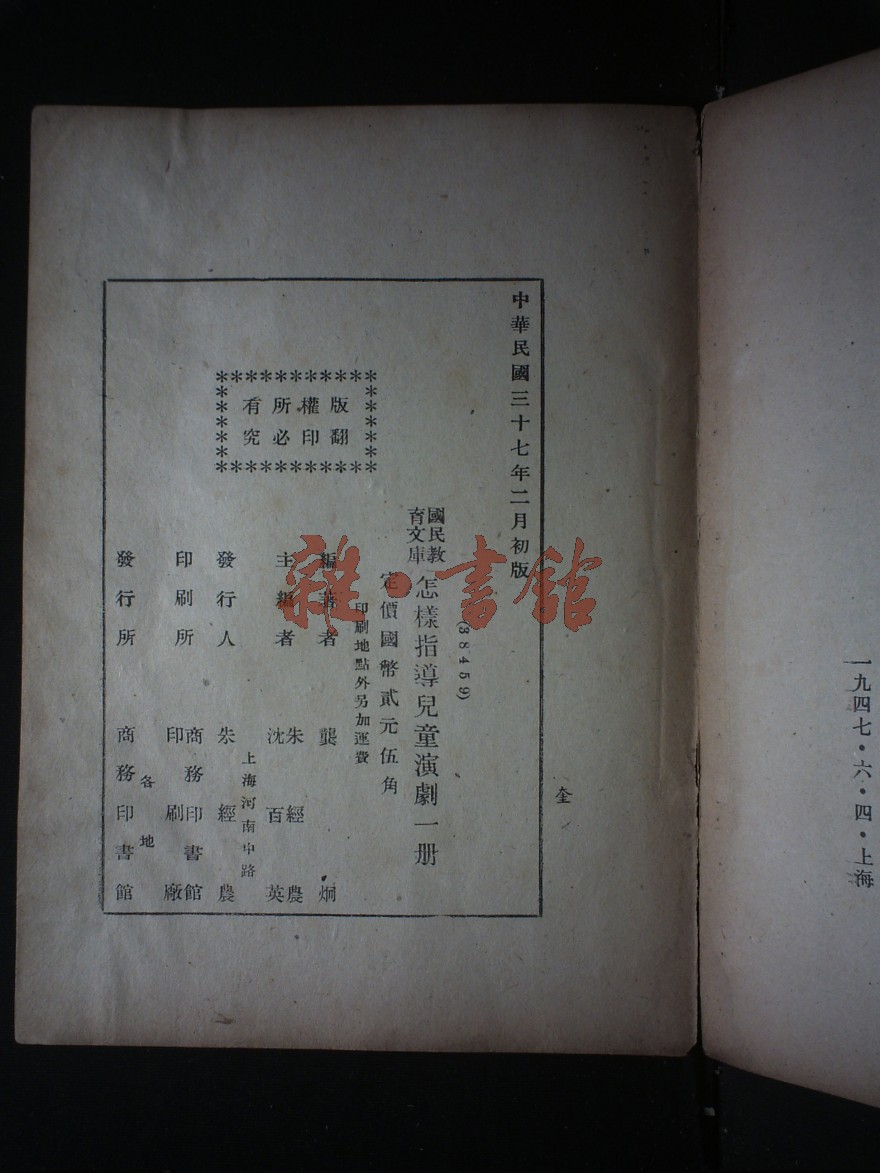 一九四七・六・四・上海
中華民國三十七年二月初版
(38459)
國民教育文庫 怎樣指導兒童演劇一册
定價國幣貳元伍角
印刷地點外另加運費
版權所有
翻印必究
編著者 龔 炯
主編者 朱經農
沈百英
上海河南中路
發行人 朱經農
印刷所 商務印書館
印刷廠
各地
發行所 商務印書館
雜・書館